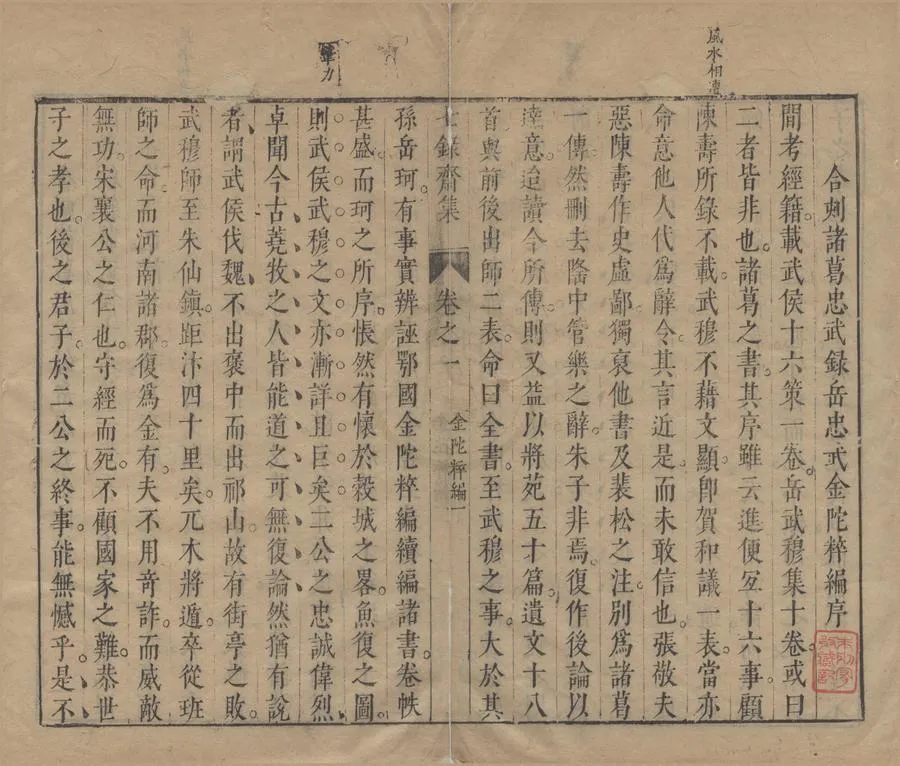 風水相遭
合刻諸葛忠武錄岳忠武金陀粹編序
閒考經籍載武侯十六策一卷岳武穆集十卷或曰
二者皆非也諸葛之書其序雖云進便宐十六事顧
陳壽所錄不載武穆不藉文顯卽賀和議一表當亦
命意他人代爲辭令其言近是而未敢信也張敬夫
惡陳壽作史虛鄙獨裒他書及裴松之注別爲諸葛
一傳然刪去隆中管樂之辭朱子非焉復作後論以
達意迨讀今所傳則又益以將苑五十篇遺文十八
首與前後出師二表命曰全書至武穆之事大於其
七錄齋集
卷之一
金陀粹編一
筆力
孫岳珂有事實辨誣鄂國金陀粹編續編諸書卷帙
甚盛而珂之所序悵然有懷於榖城之畧魚復之圖
則武侯武穆之文亦漸詳且巨矣二公之忠誠偉烈
卓聞今古蕘牧之人皆能道之可無復論然猶有說
者謂武侯伐魏不出褒中而出祁山故有街亭之敗
武穆師至朱仙鎭距汴四十里矣兀木將遁卒從班
師之命而河南諸郡復爲金有夫不用奇詐而威敵
無功宋襄公之仁也守經而死不顧國家之難恭世
子之孝也後之君子於二公之終事能無憾乎是不